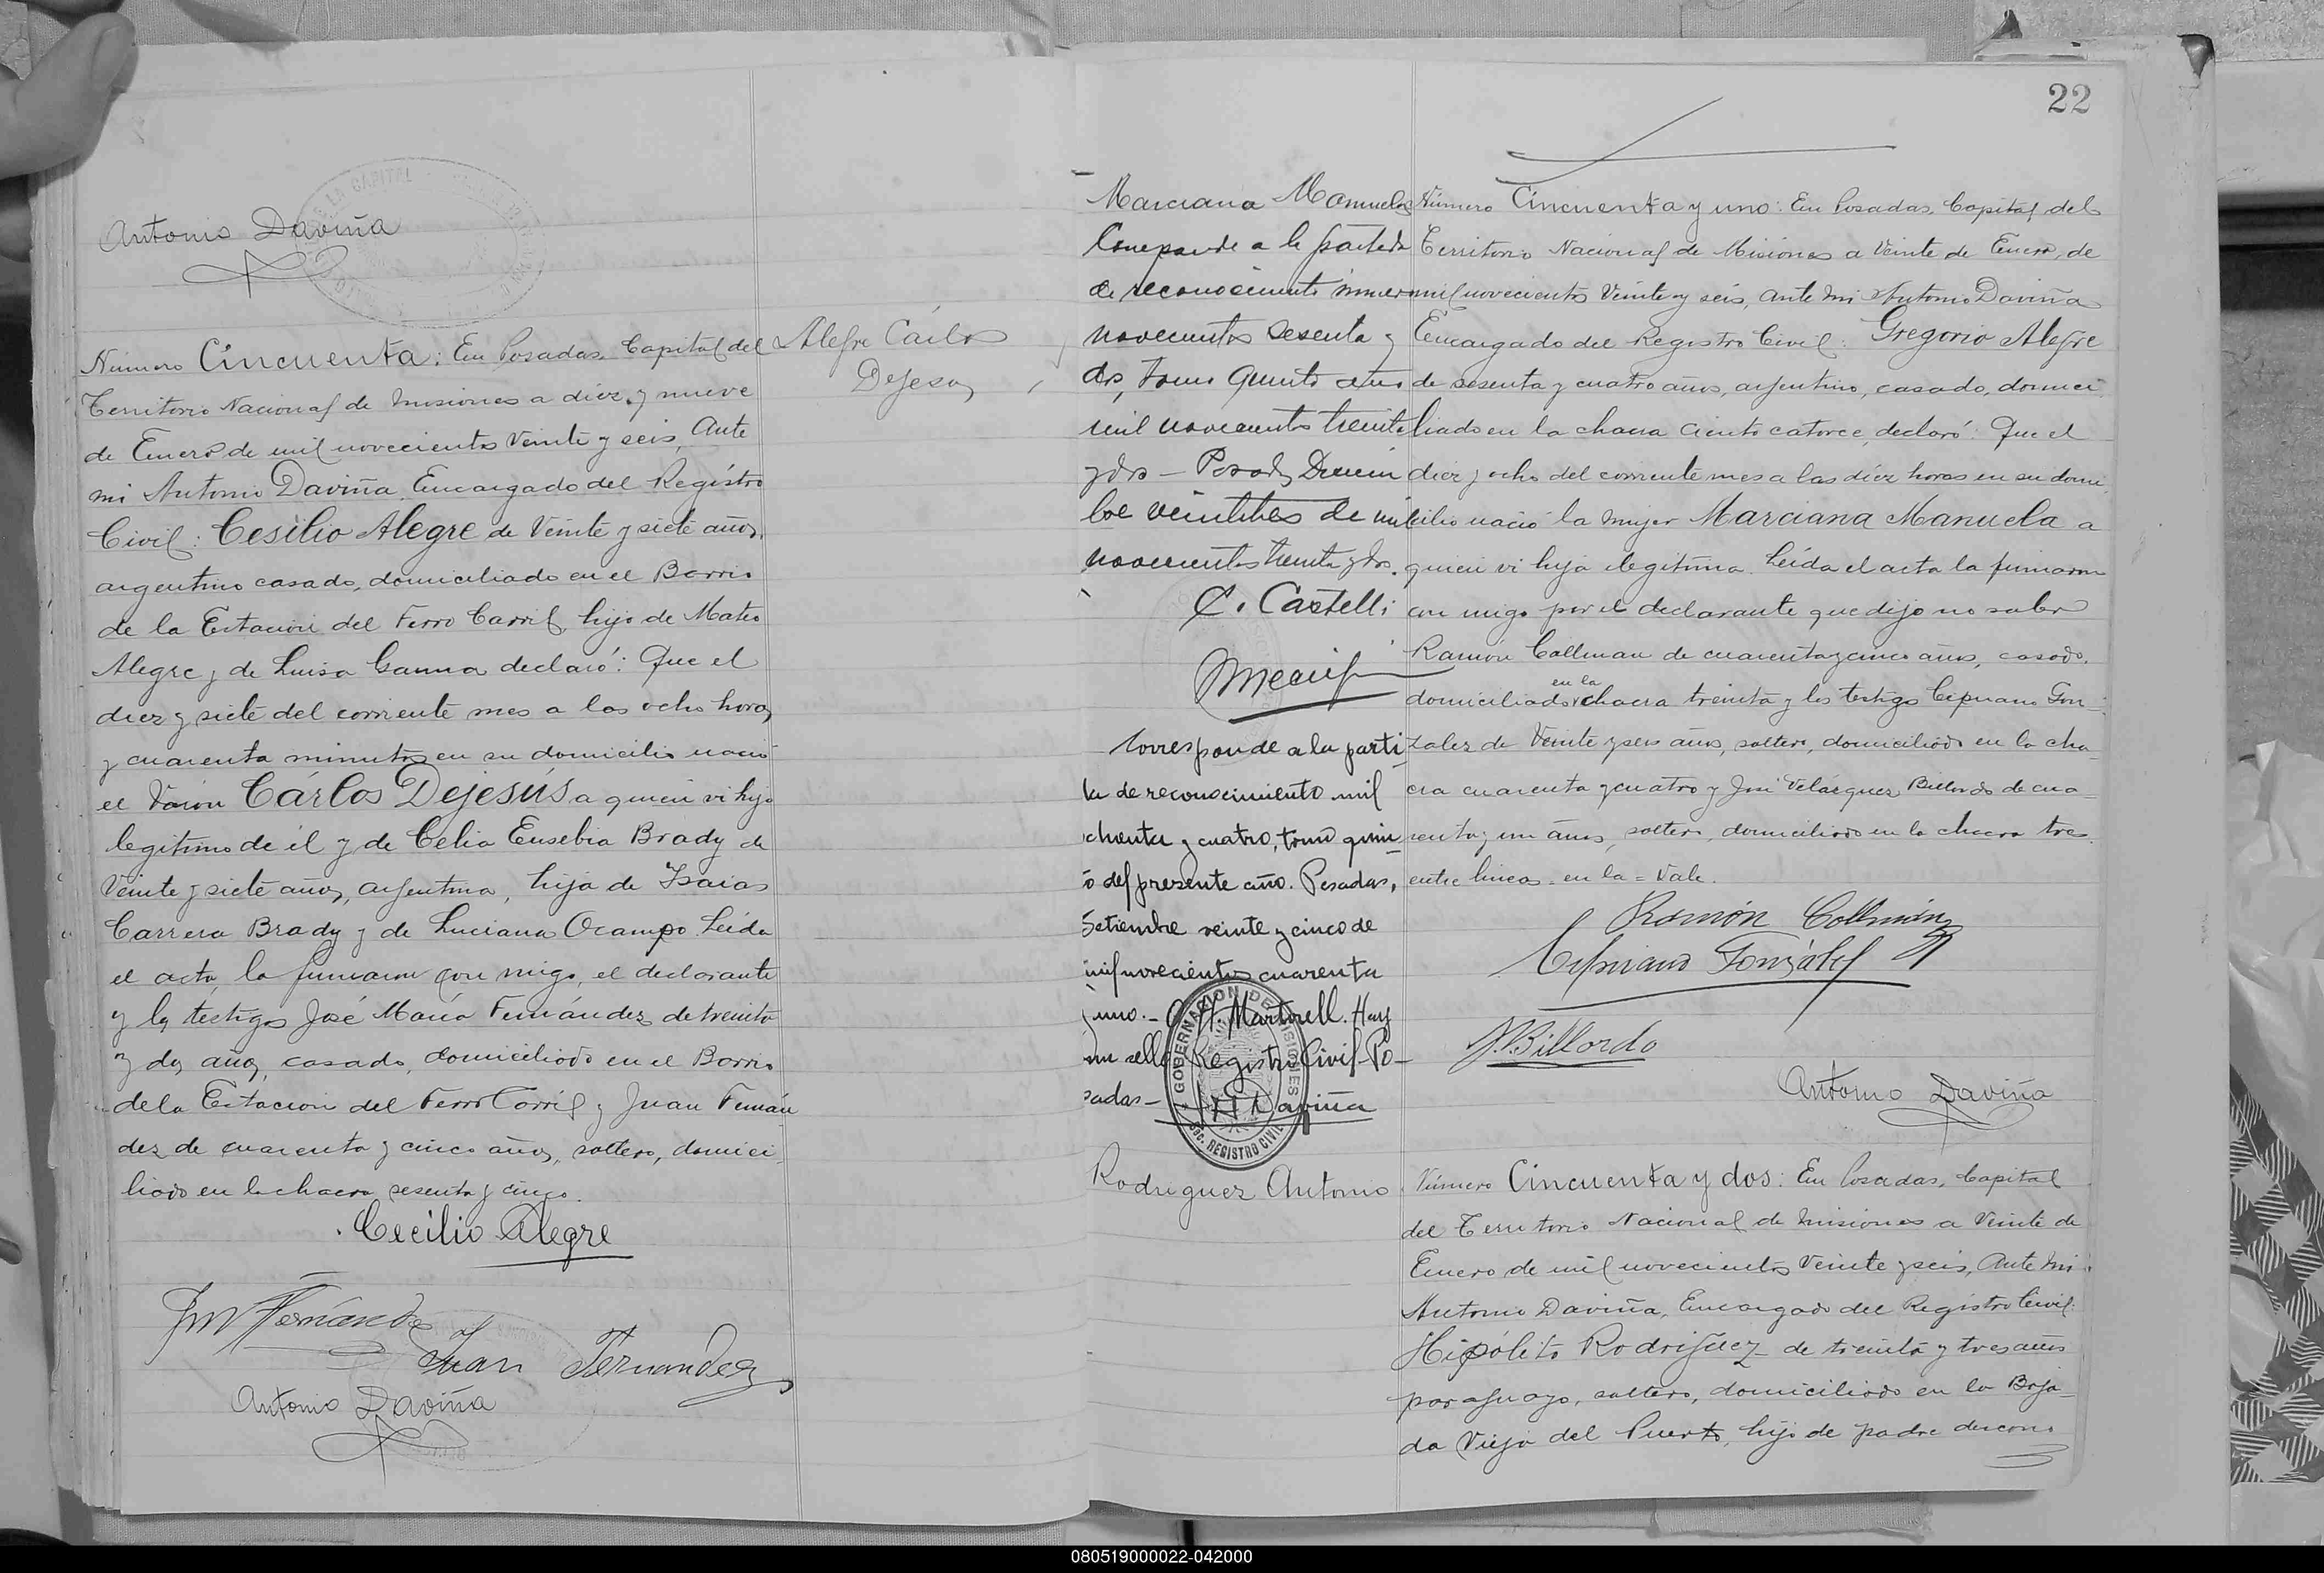 Antonio Daviña
Número Cincuenta: En Posadas, Capital del
Territorio Nacional de Misiones a diez y nueve
de Enero de mil novecientos Veinte y seis, Ante
mi Antonio Daviña Encargado del Registro
Civil: Cesilio Alegre de Veinte y siete años,
argentino casado, domiciliado en el Barrio
de la Estación del Ferro Carril, hijo de Mateo
Alegre y de Luisa declaró: Que el
diez y siete del corriente mes a las ocho horas
y cuarenta minutos en su domicilio nació
el Varón Cárlos Dejesús a quien vi hijo
legitimo de él y de Celia Eusebia Brady de
Veinte y siete años, argentina, hija de Isaias
Carrera Brady y de Luciana Ocampo. Leida
el acta, la firmaron con migo, el declarante
y los testigos José María Fernández de treinta
y dos años, casado, domiciliado en el Barrio
de la Estación del Ferro Carril y Juan Fernán
dez de cuarenta y cinco años, soltero, domici
liado en la chacra sesenta y cinco.
Cecilio Alegre
Jm Fernández
Juan Fernandez
Antonio Daviña
Alegre Cárlos
Dejesus
22
Marciana Manuela
Corresponde a la partida
de reconocimiento número
novecientos sesenta y
dos, tomo quinto año
mil novecientos treinta
y dos – Posadas Diciem
bre veintitres de mil
novecientos treinta y dos.
C. Castelli
Corresponde a la parti
da de reconocimiento mil
chenta y cuatro, tomo quin
o del presente año. Posadas,
Setiembre veinte y cinco de
mil novecientos cuarenta
y uno.- H. Martorell. Hay
un sello Registro Civil-Po-
sadas-
Daviña
GOBERNACION DE MISIONES
REGISTRO CIVIL
Número Cincuenta y uno: En Posadas, Capital del
Territorio Nacional de Misiones a Veinte de Enero, de
mil novecientos Veinte y seis, ante mi Antonio Daviña
Encargado del Registro Civil: Gregorio Alegre
de sesenta y cuatro años, argentino, casado, domici
liado en la chacra ciento catorce, declaró: Que el
diez y ocho del corriente mes a las diez horas en su domi
cilio nació la mujer Marciana Manuela a
quien vi hija ilegitima. Leída el acta la firmaron
con migo por el declarante que dijo no saber
Ramón Collman de cuarenta y cinco años, casado,
en la
domiciliado chacra treinta y los testigos Cipriano Gon-
zalez de Veinte y seis años, soltero, domiciliado en la cha-
cra cuarenta y cuatro y José Velázquez Billordo de cua-
renta y un años, soltero, domiciliado en la chacra tres.
entre lineas = en la = Vale.
Ramón Collmán
Cipriano González
J. Billordo
Antonio Daviña
Rodriguez Antonio
Número Cincuenta y dos: En Posadas, Capital
del Territorio Nacional de Misiones a Veinte de
Enero de mil novecientos Veinte y seis, Ante mi
Antonio Daviña, Encargado del Registro Civil:
Hipólito Rodriguez de treinta y tres años
paraguayo, soltero, domiciliado en la Baja-
da Vieja del Puerto, hijo de padre descono
080519000022-042000